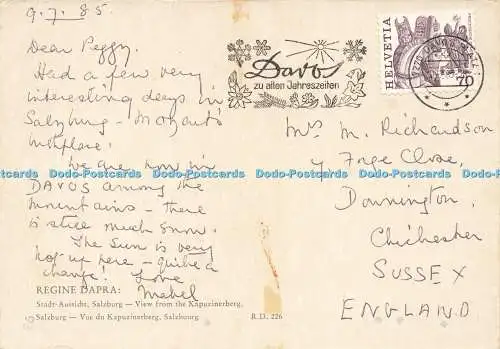 9.7.85
Dear Peggy.
Had a few very
interesting days in
Salzburg - Mozart's
birthplace!
We are now in
DAVOS among the
mountains - there
is still much snow.
The Sun is very
hot up here - quite a
change! Love
Mabel
REGINE DAPRA:
Stadt-Ansicht, Salzburg — View from the Kapuzinerberg,
Salzburg — Vue du Kapuzinerberg, Salzbourg
R.D. 226
Davos
zu allen Jahreszeiten
HELVETIA
70
Mrs M. Richardson
4 Forge Close,
Donnington,
Chichester
SUSSEX
ENGLAND
Dodo-Postcards Dodo-Postcards Dodo-Postcards Dodo-Postcards Dodo-Postcards Dodo-Postcards